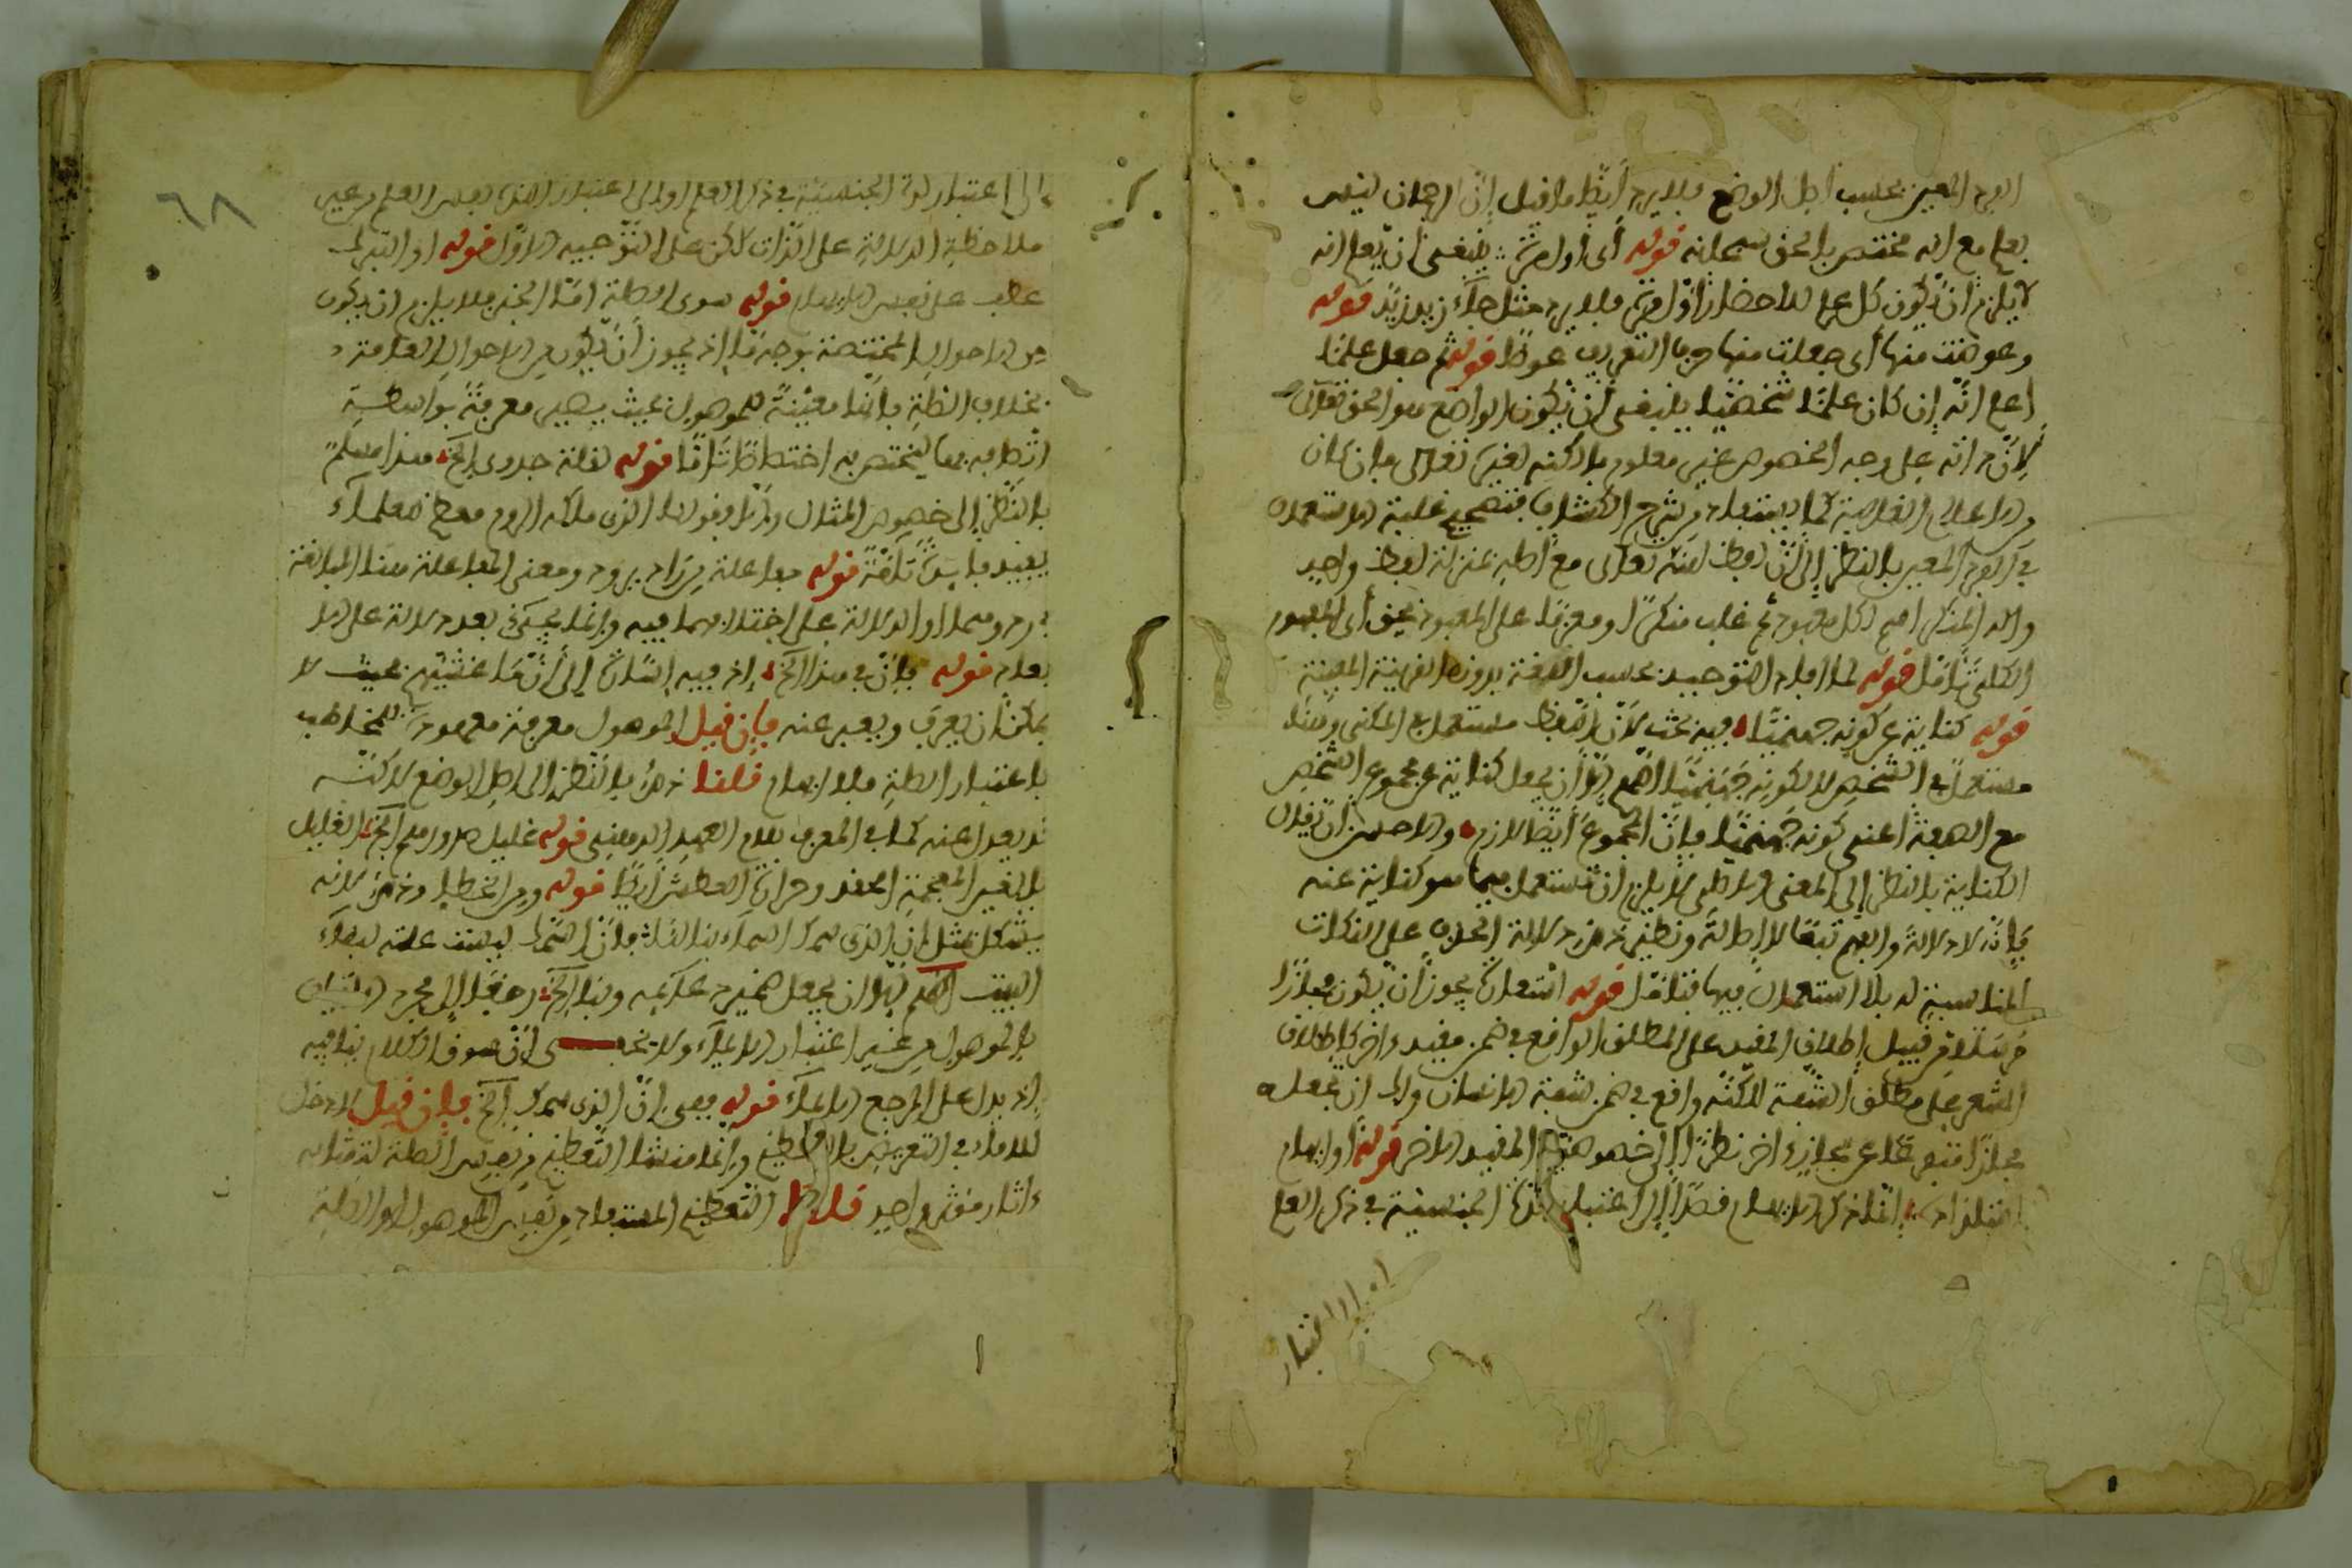 الفرد المعين بحسب اصل الوضع فلا يرد أيضا ما قيل إن الرحمان ليس
بعلم مع انه مختص بالحق سبحانه قوله أي اول مرة ينبغي ان يعلم انه
لا يلزم ان يكون كل علم للاحضار اول مرة فلا يرد مثل جاء زيد زيد قوله
وعوضت منها أي جعلت منها حرف التعريف عوضا قوله ثم جعل علما
اعلم انه إن كان علما شخصيا ينبغي أن يكون الواضع هو الحق تعالى
لأن ذاته على وجه الخصوص غير معلوم بالكنه لغيره تعالى وإن كان
من الاعلام الغالبة كما يستفاد من شرح الكشاف فتصحيح غلبة الاستعمال
في الفرد المعين بالنظر إلى أن لفظ الله تعالى مع اصله بمنزلة لفظ واحد
والاه المنكر اسم لكل معبود ثم غلب منكرا او معرفا على المعبود بحق أي المفهوم
الكلي تأمل قوله لما افاد التوحيد بحسب اللغة بدون القرينة المعينة
قوله كناية عن كونه جهنميا فيه بحث لأن اللفظ مستعمل في المكني وهنا
مستعمل في الشخص لا لكونه جهنميا اللهم إلا أن يجعل كناية عن مجموع الشخص
مع الصفة اعني كونه جهنميا فإن المجموع أيضا لازم والاحسن ان يقال
الكناية بالنظر إلى المعنى الاصلي لا يلزم ان تستعمل فيما هو كناية عنه
فإنه لا دلالة والفهم تبعا لا اصالة ونظيره دلالة الحرف على النكات
المناسبة له بلا استعمال فيها فتأمل قوله استعارة يجوز ان يكون مجازا
مرسلا من قبيل إطلاق المقيد على المطلق الواقع في ضمن مقيد اخر كإطلاق
المشفر على مطلق الشفة لاكنه واقع في ضمن شفة الانسان ولك ان تجعله
مجازا متفرعا عن مجاز اخر نظرا إلى خصوصية المقيد الاخر قوله او ايهام
استلذاذه انما ذكر الايهام قصدا إلى اعتبار لذة الجنسية في ذكر العلم
٦٨
إلى اعتبار لذة الجنسية في ذكر العلم او إلى اعتبار اللذة بنفس العلم من غير
ملاحظة الدلالة على الذات لاكن على التوجيه الاول قوله او التبرك
عطف على نفس الايهام قوله سوى الصلة امّا الخبر فلا يلزم ان يكون
من الاحوال المختصة بوجه ما إذ يجوز أن يكون من الاحوال العامة
بخلاف الصلة فإنها معينة للموصول بحيث يصير معرفة بواسطة
اتصافه بها ليختص به اختصاصا تاما قوله لقلة جدوى الخ هذا مسلم
بالنظر إلى خصوص المثال وإلا فقولنا الذي ملك الروم معظم العلماء
يفيد فائدة تامة قوله مفاعلة من راد يرود ومعنى المفاعلة هنا المبالغة
في رد ومما او الدلالة على اختلافهما فيه وإنما يحكى بعد دلالة على
بعد قوله فإن في هذا الخ إذ فيه إشارة إلى أن ما غشيهم بحيث لا
يمكن ان يعرف ويعبر عنه فإن قيل الموصول معرفة معهودة للمخاطب
باعتبار الصلة فلا ابهام قلنا ذلك بالنظر إلى اصل الوضع لاكنه
قد يعدل عنه كما في المعرف بلام العهد الذهني قوله غليل صدورهم الخ الغليل
بالغين المعجمة الحقد وحرارة العطش أيضا قوله ومن الخطا وذلك لأنه
يشكل بمثل إن الذي سمك السماء بنا لنا فإن السماك ليست علة لبناء
البيت اللهم إلا ان يجعل ضمير عليه وبنا الخ راجعا إلى مجرد
بالموصول من غير اعتبار الايماء ولا يخفى أن سوق الكلام ينافيه
إذ يدل على المرجع الايماء قوله ففي إن الذي سمك الخ فإن قيل لا دخل
للايماء في التعريض بالتعظيم وإنما منشا التعظيم من نفس الصلة لدلالته
اثار مؤثر واحد قلنا التعظيم المستفاد من نفس الموصول او الصلة